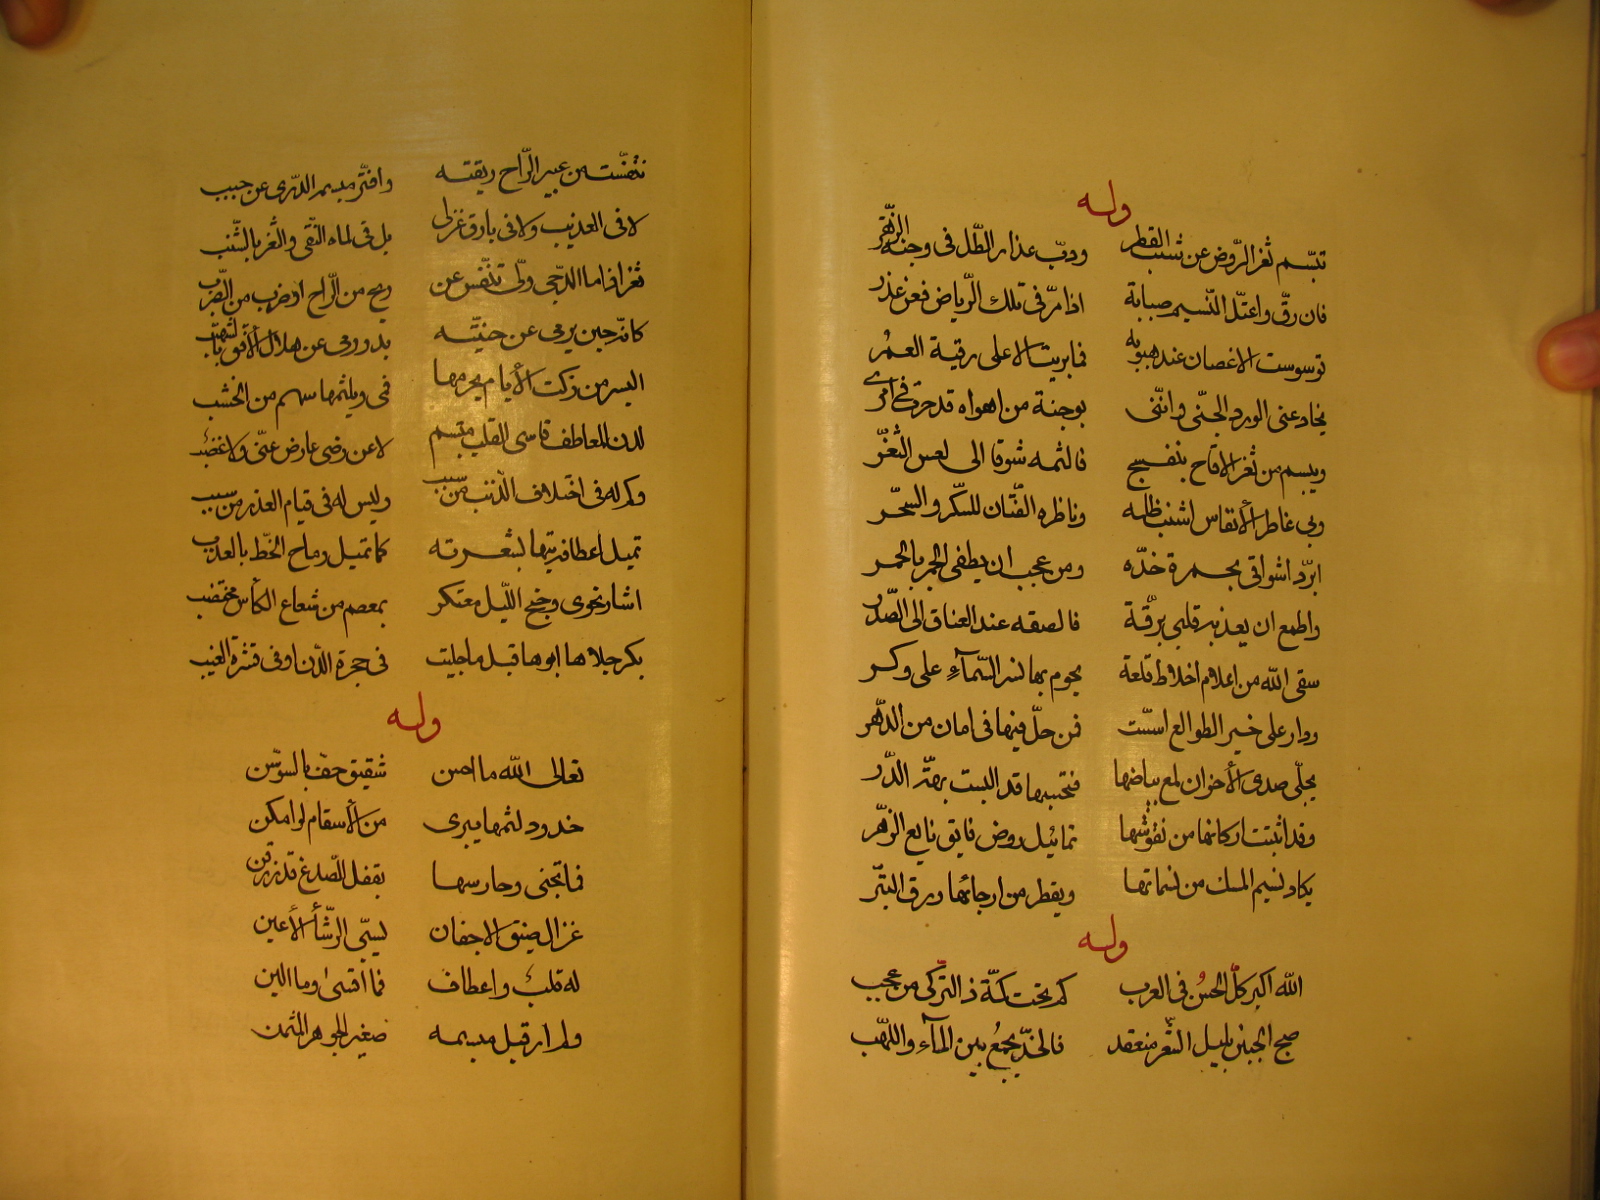 وله
تبسّم ثغر الرّوض عن شنب القطر ودبّ عذار الطّل في وجنة الزّهر
فان رقّ واعتلّ النّسيم صبابة اذا مرّ في تلك الرّياض فعن عذر
توسوست الاغصان عند هبوبه فما بريت الا على رقية العمُر
يخادعنى الورد الجنّى وانّنى بوجنة من اهواه قد حرت في امرى
ويبسم من ثغر الاقاح بنفسج فالثمه شوقا الى لعس الثّغر
وبى عاطر الأنفاس اشنب ظلمه وناظره الفتّان للسكّر والسحّر
ابرّد اشواقى بجمرة خدّه ومن عجب ان يطفى الجمر بالجمر
واطمع ان يعذبه قلبى برقّة فالصقه عند العناق الى الصّدر
سقى الله من اعلام اخلاط قلعة يحوم بها نسر السّمآءِ على وكر
ودار على خير الطوالع اسّست فمن حلّ فيها فى امان من الدّهر
يجلّى صدى الأحزان لمع بياضها فتحسبها قد البست بهتّر الدّر
وقد اثبتت اركانها من نقوشها تماثيل روض فايق نايع الزهر
يكاد نسيم المسك من نسماتها ويقطر من ارجائها ورق التبّر
وله
الله اكبر كلّ الحسُن فى العرب كم تحت كمّة ذا التركّى من عجب
صبح الجبين بليل الشّعر منعقد فالخدّ يجمعُ بين المآءِ واللّهب
تنفّست من عبير الرّاح ريقته وافترّ مبسم الدّرى عن حبب
لا فى العذيب ولا فى بارق غزلى بل فى لماه النّقى والثّغر بالشّنب
ثغر اذا ما الدّجى ولّى تنفّس عن ريح من الرّاح او ضرب من الضّرب
كانّه حين يرمى عن حنيّته بدر رمى عن هلال الأفق بالشّهب
اليس من نكت الأيام يحرمها فمى ويلثمها سهم من الخشب
لدن المعاطف قاسى القلب مبتسم لا عن رضى عارض عنّى ولا غضب
وكم له فى اختلاف الذّنب من سبب وليس له فى قيام العذر من سبب
تميل اعطافه تيها بشعرته كما تميل رماح الخّط بالعذب
اشار نحوى وجنح اللّيل معتكر بمعصم من شعاع الكأس مختضب
بكر جلاها ابوها قبل ما جليت فى حجرة الدّن او فى قشرة العنب
وله
تعالى الله ما احسن شقيق حفّ بالسوسّن
خدود لثمها يبرى من الأسقام لو امكن
فما تجنى وحارسها بقفل الصّدغ قد زرفن
غزال ضيق الاجفان يسبّى الرّشأ الأعين
له قلب واعطاف فما اقسى وما الين
ولم ار قبل مبسمه صغير الجوهر المثمن